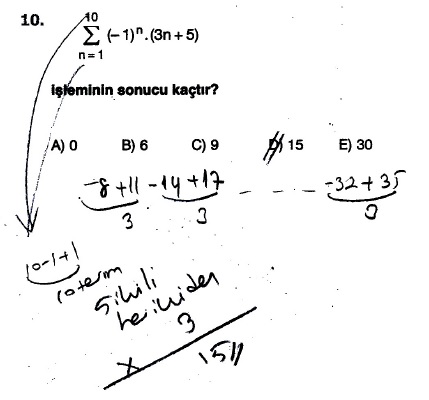 10.
10
∑ (−1)ⁿ.(3n+5)
n=1
işleminin sonucu kaçtır?
A) 0 B) 6 C) 9 D) 15 E) 30
-8+11-14+17 - - - - -32+35
3 3 3
10-1+1
10 terim
5 ikili
her ikiden
3
x 15//